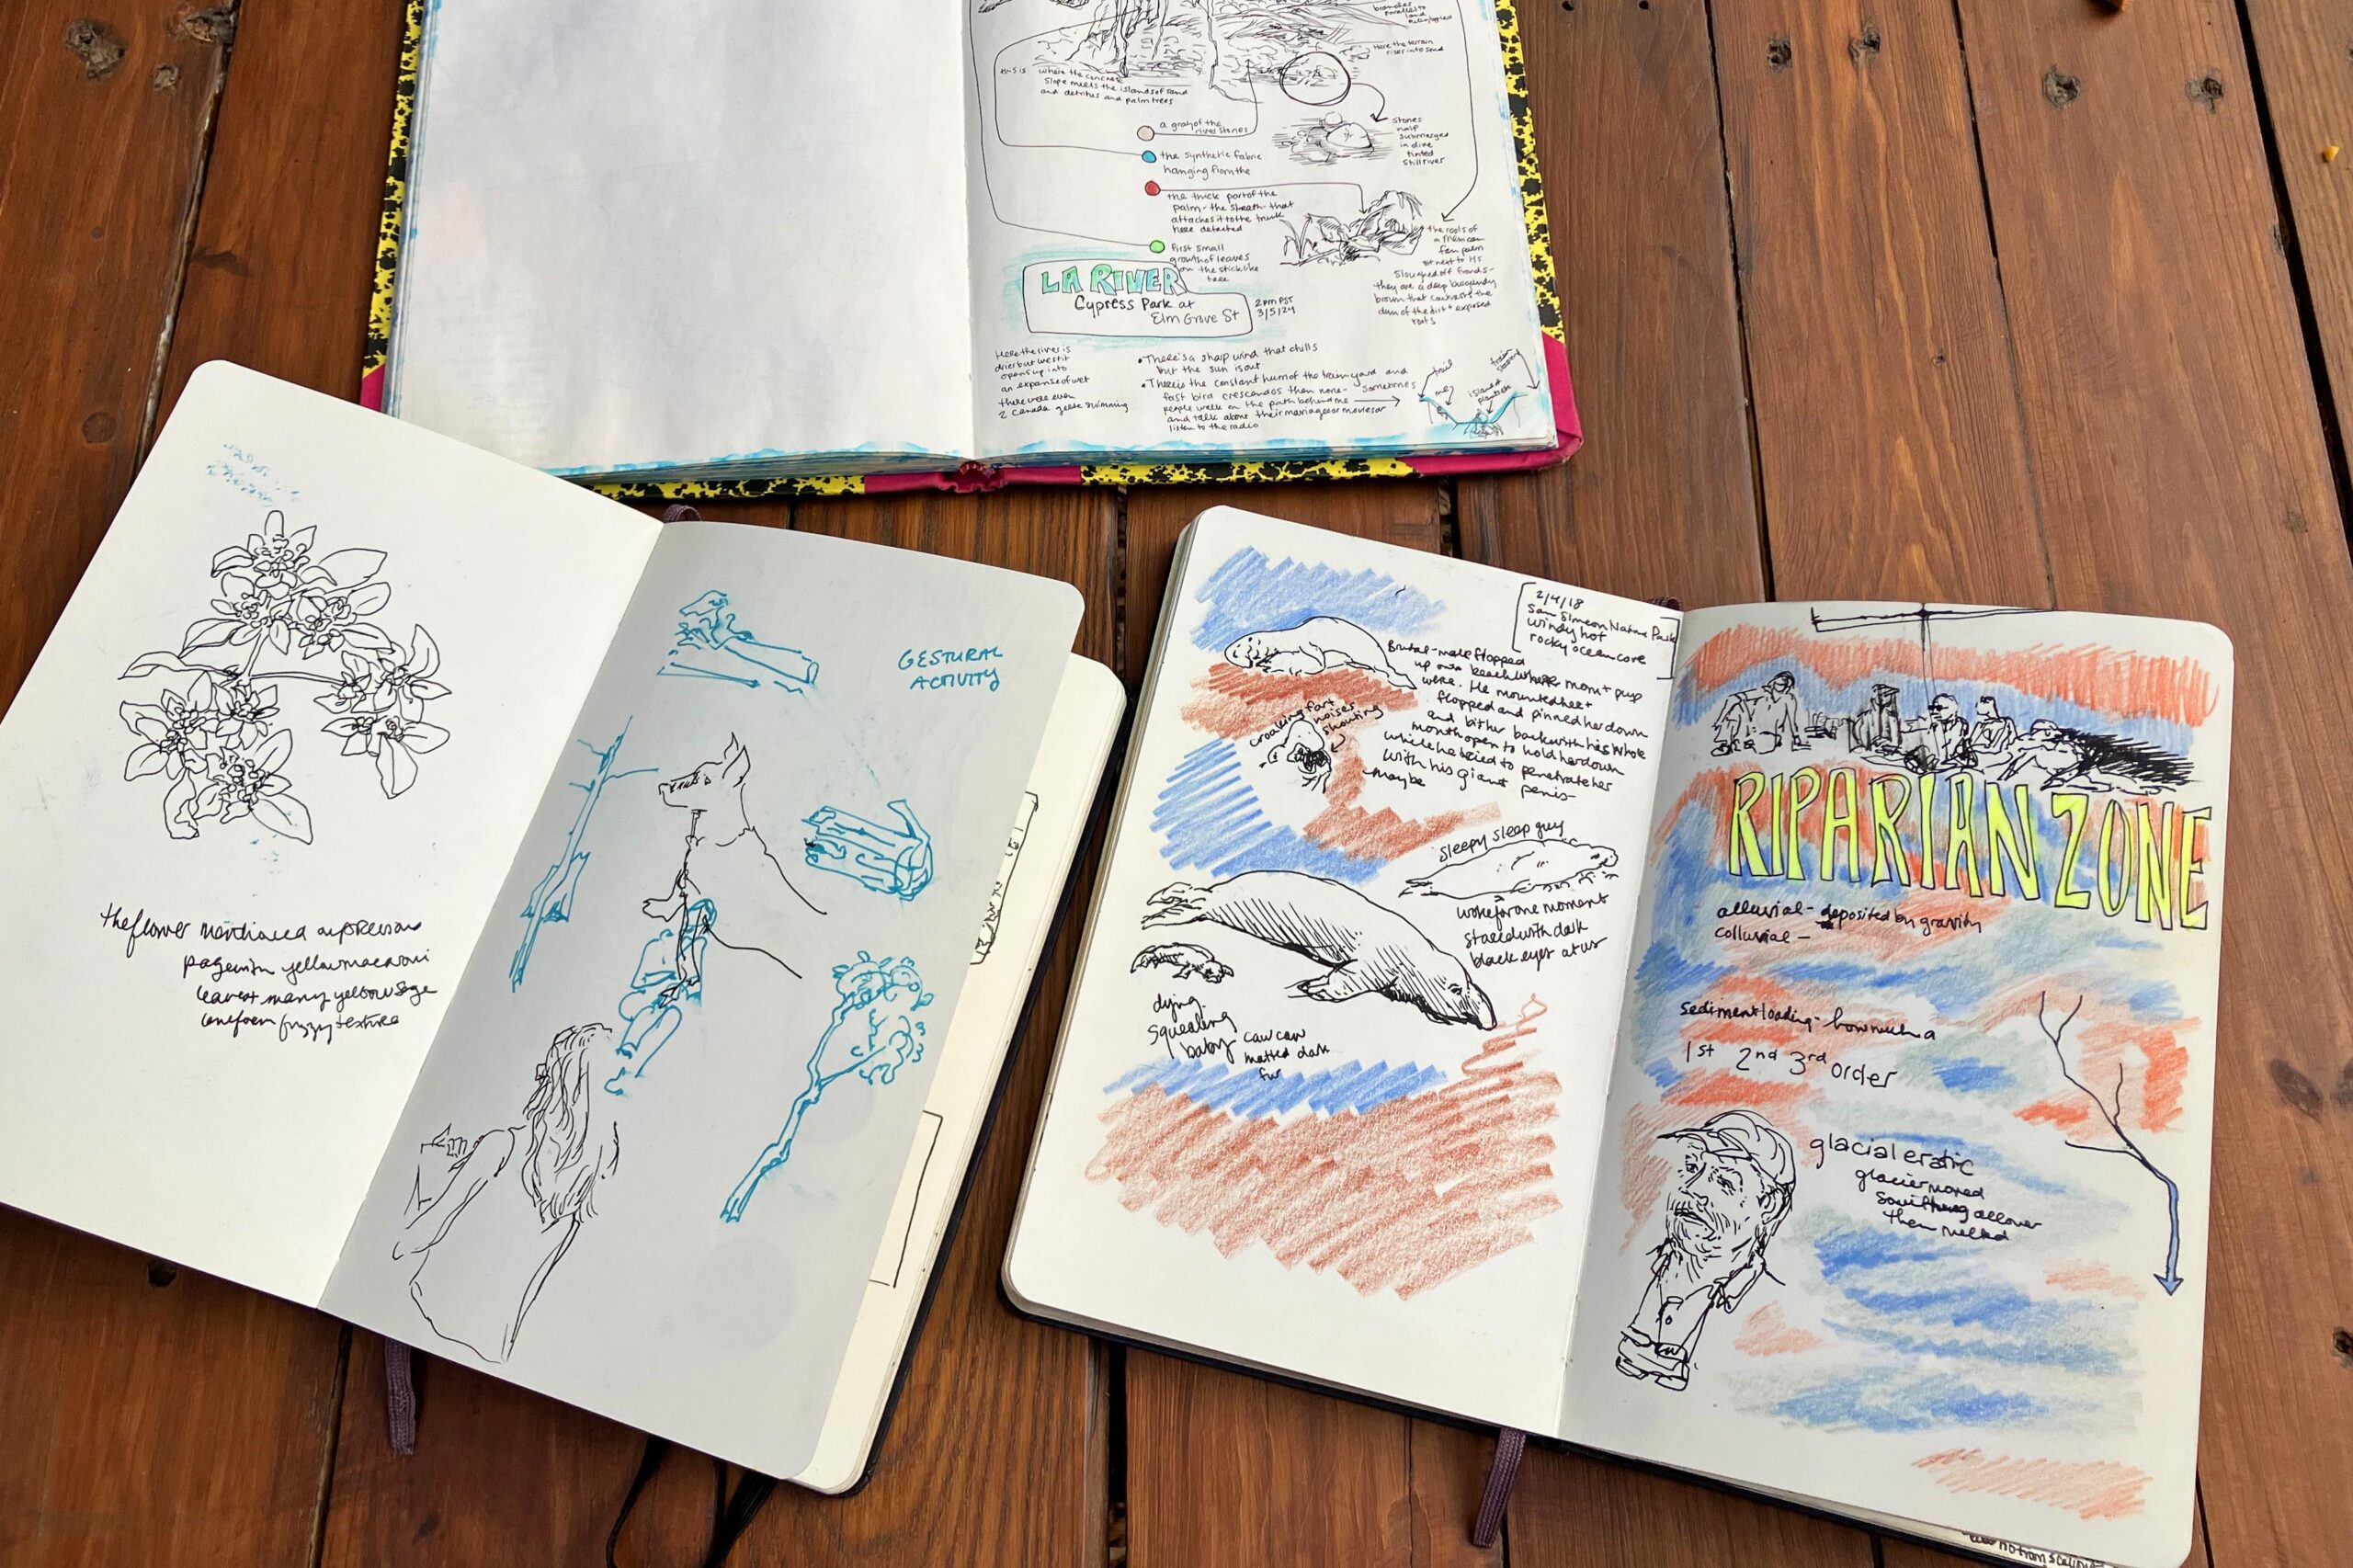 branches
parallel to
land
Here the terrain
rises into sand
this is where the concrete
slope meets the islands of sand
and detritus and palm trees
a gray of the
river stones
the synthetic fabric
hanging from the
the thick part of the
palm - the sheath - that
attaches it to the trunk
here detected
first small
growth of leaves
on the sticklike
tree
stones
half
submerged
in olive
tinted
still river
the roots of
a Mexican
fan palm
next to its
sloughed off fronds -
they are a deep burgundy
brown that contrasts the
of the dirt + exposed
roots
LA RIVER
Cypress Park at
Elm Grove St
2pm PST
3/5/24
Here the river is
drier but west it
opens up into
an expanse of wet
there were even
2 Canada geese swimming
• There's a sharp wind that chills
but the sun is out
• There is the constant hum of the train yard and
fast bird crescendos then none - sometimes
people walk on the path behind me
and talk about their marriage or movies or
listen to the radio
trail
me
island of
train
the flower mentioned on previous
page with yellow macaroni
leaves + many yellow
uneform fuzzy texture
GESTURAL
ACTIVITY
2/4/18
San Simeon Nature Park
windy hot
rocky ocean cove
Brutal - male flopped
up own beach where mom + pup
were. He mounted her +
flopped and pinned her down
and bit her back with his whole
mouth open to hold her down
while he tried to penetrate her
with his giant penis -
maybe
croaking fart
noises
shouting
sleepy sleep guy
woke for one moment
stared with dark
black eyes at us
dying
squealing
baby
caw caw
matted dark
fur
RIPARIAN ZONE
alluvial - deposited by gravity
colluvial -
sediment loading - how much a
1st 2nd 3rd order
glacial eratic
glacier moved
something all over
then melted